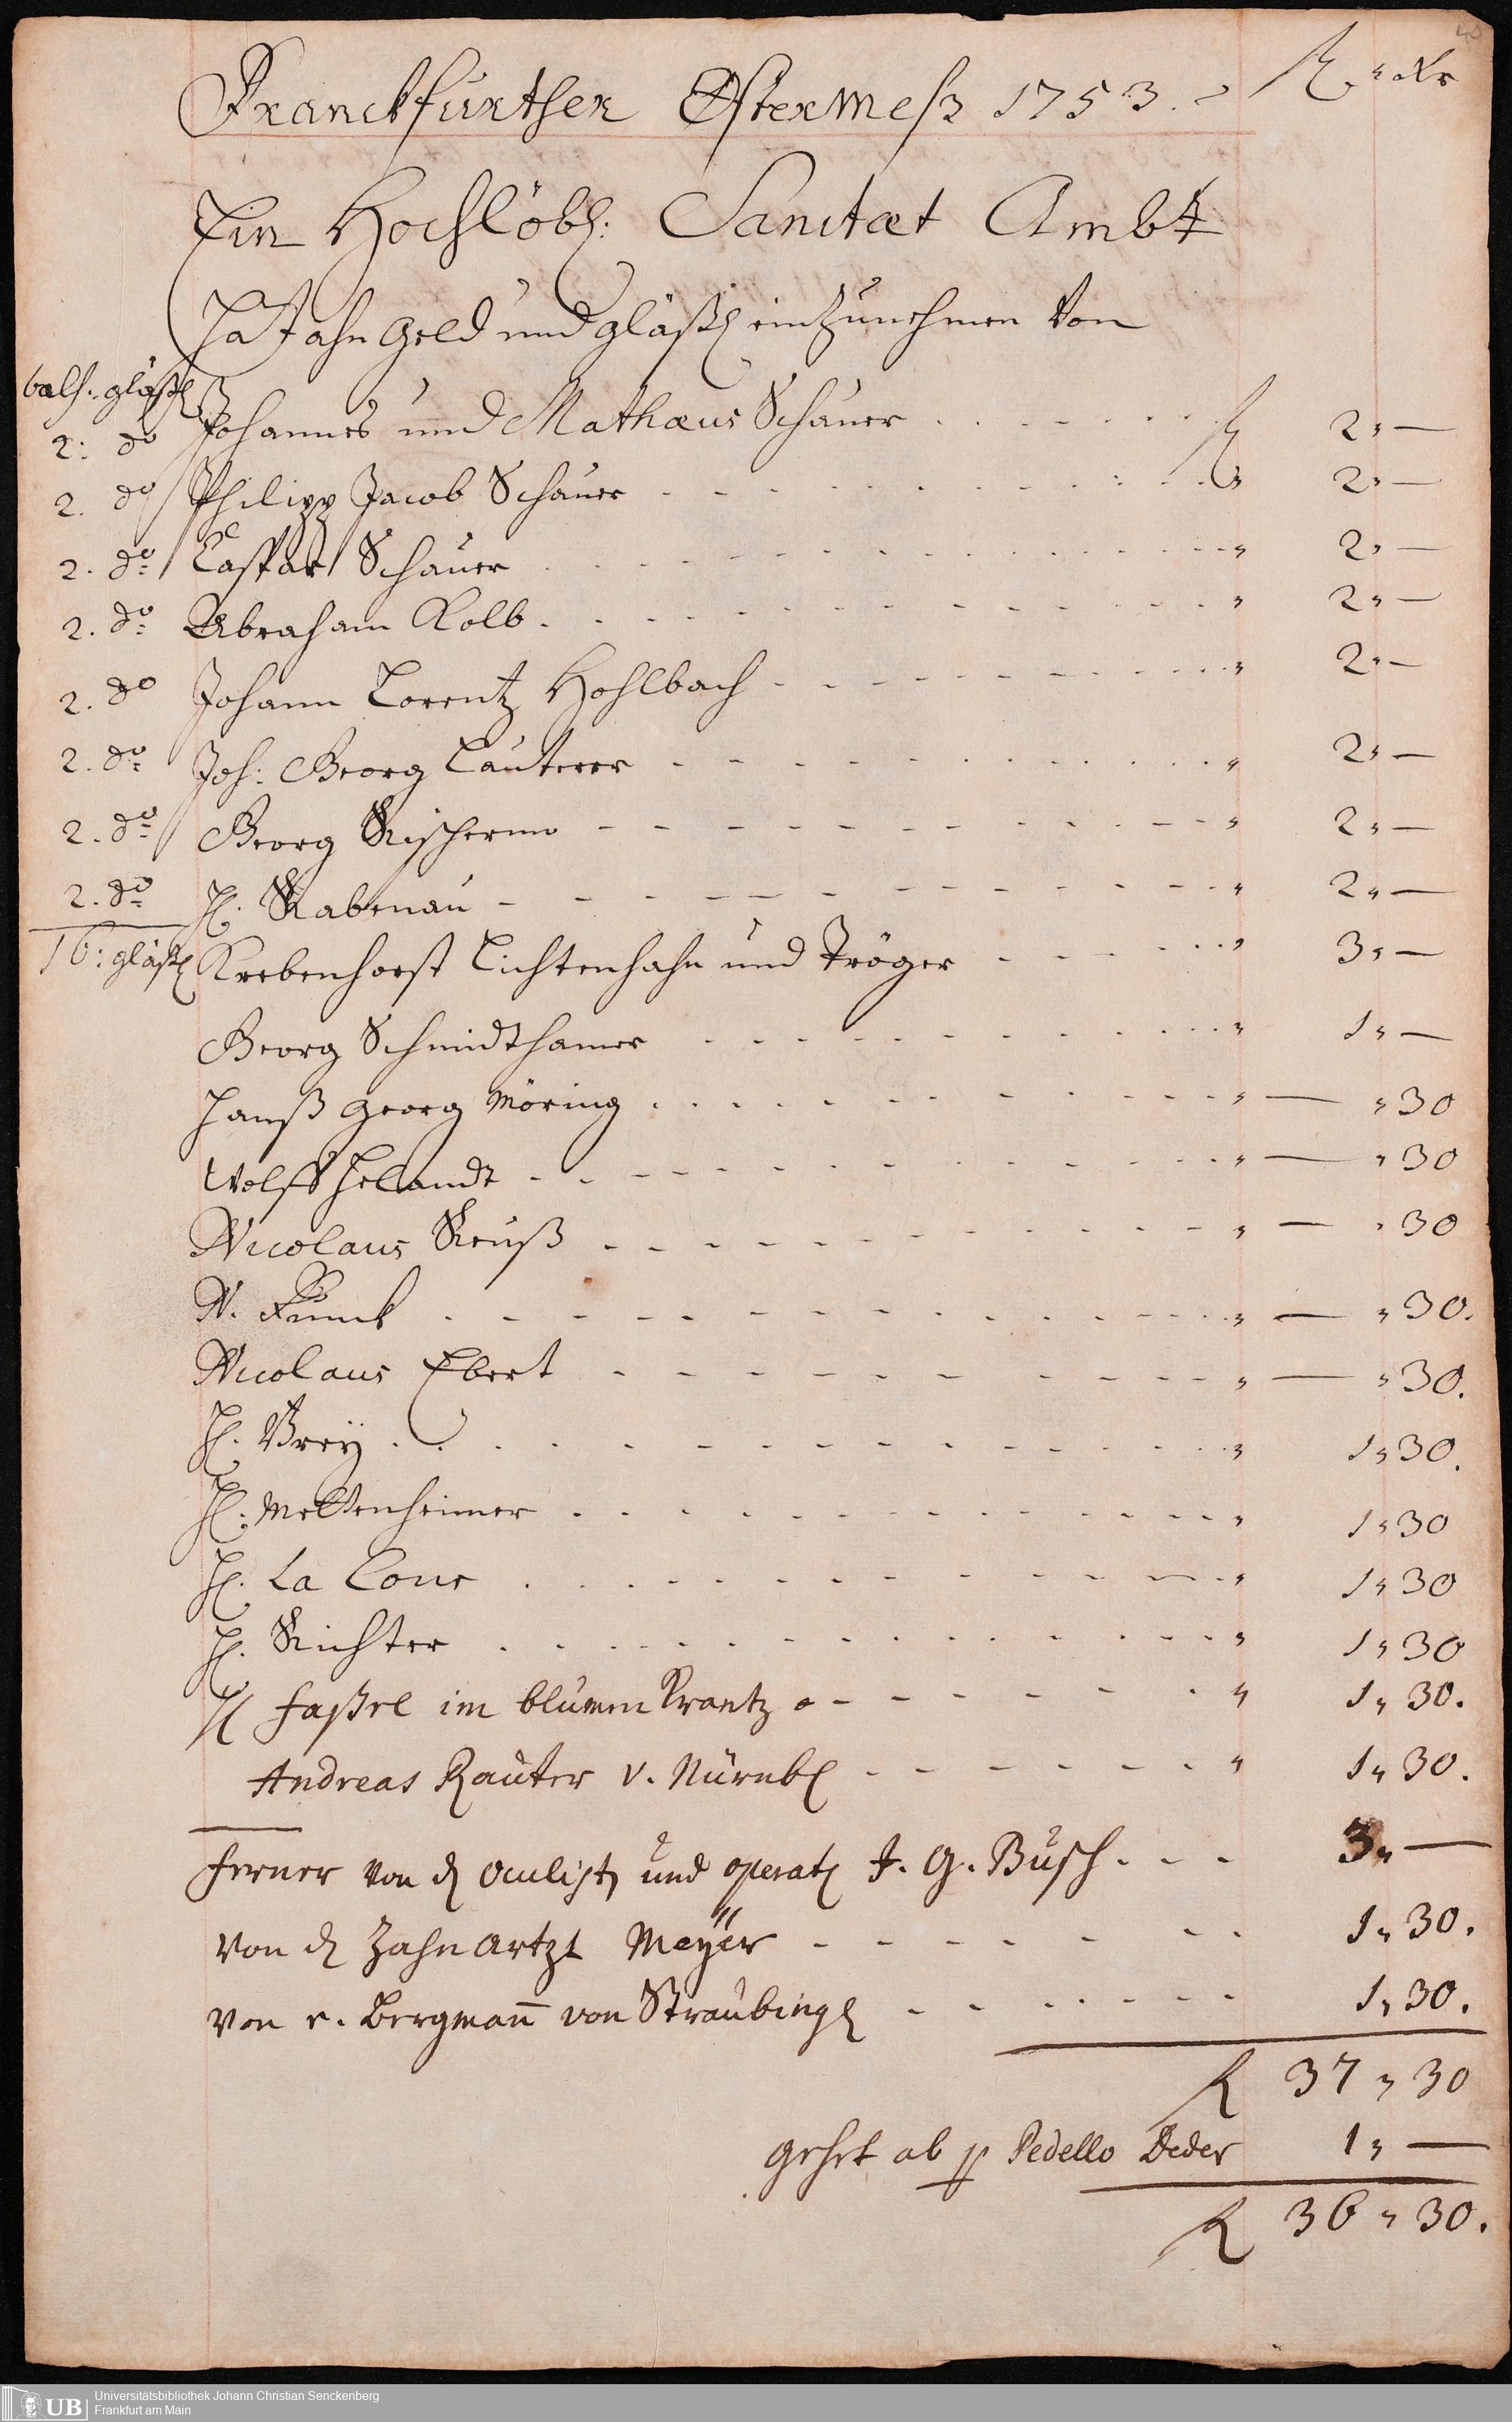 40
Franckfurther Ostermeß 1753. fl. " Xr
Ein Hochlöbl: Sanitæt Ambt
Hat ahn Geld und gläßl einZunehmen Von
bals: gläßl
2: do Johannes und Mathæus Schauer . . . . . . fl 2 " —
2. do Philipp Jacob Schauer - - - - - - " 2 " —
2. do Caspar Schauer - - - - - - " 2 " —
2. do Abraham Kolb - - - - - - " 2 " —
2. do Johann Lorentz Hohlbach - - - - - - " 2 " —
2. do Joh: Georg Lauterer - - - - - - " 2 " —
2. do Georg - - - - - - " 2 " —
2. do H. Rabenau - - - - - - " 2 " —
16: gläßl Krebenhorst Lichtenhahn und Tröger - - - - " 3 " —
Georg Schmidthamer - - - - - - " 1 " —
Hanß Georg Möring - - - - - - " — " 30
Wolff Helandt - - - - - - " — " 30
Nicolaus Reuß - - - - - - " — " 30
N. Funck - - - - - - " — " 30.
Nicolaus Ebert - - - - - - " — " 30.
H. Brey - - - - - - " 1 " 30.
H. Mettenheimer - - - - - - " 1 " 30
H. La Cour - - - - - - " 1 " 30
H. Richter - - - - - - " 1 " 30
H faßel im blumen Krantz - - - - - - " 1 " 30.
Andreas Rauter v. Nürnbl - - - - - - " 1 " 30.
ferner von d oculist und operat J. G. Busch - - - 3 " —
von d Zahnartzt Meyer - - - - - - 1 " 30.
von e. Bergmann von Straubing - - - - - - 1 " 30.
fl 37 " 30
gehet ab p Pedello Deder 1 " —
fl 36 " 30.
UB
Universitätsbibliothek Johann Christian Senckenberg
Frankfurt am Main